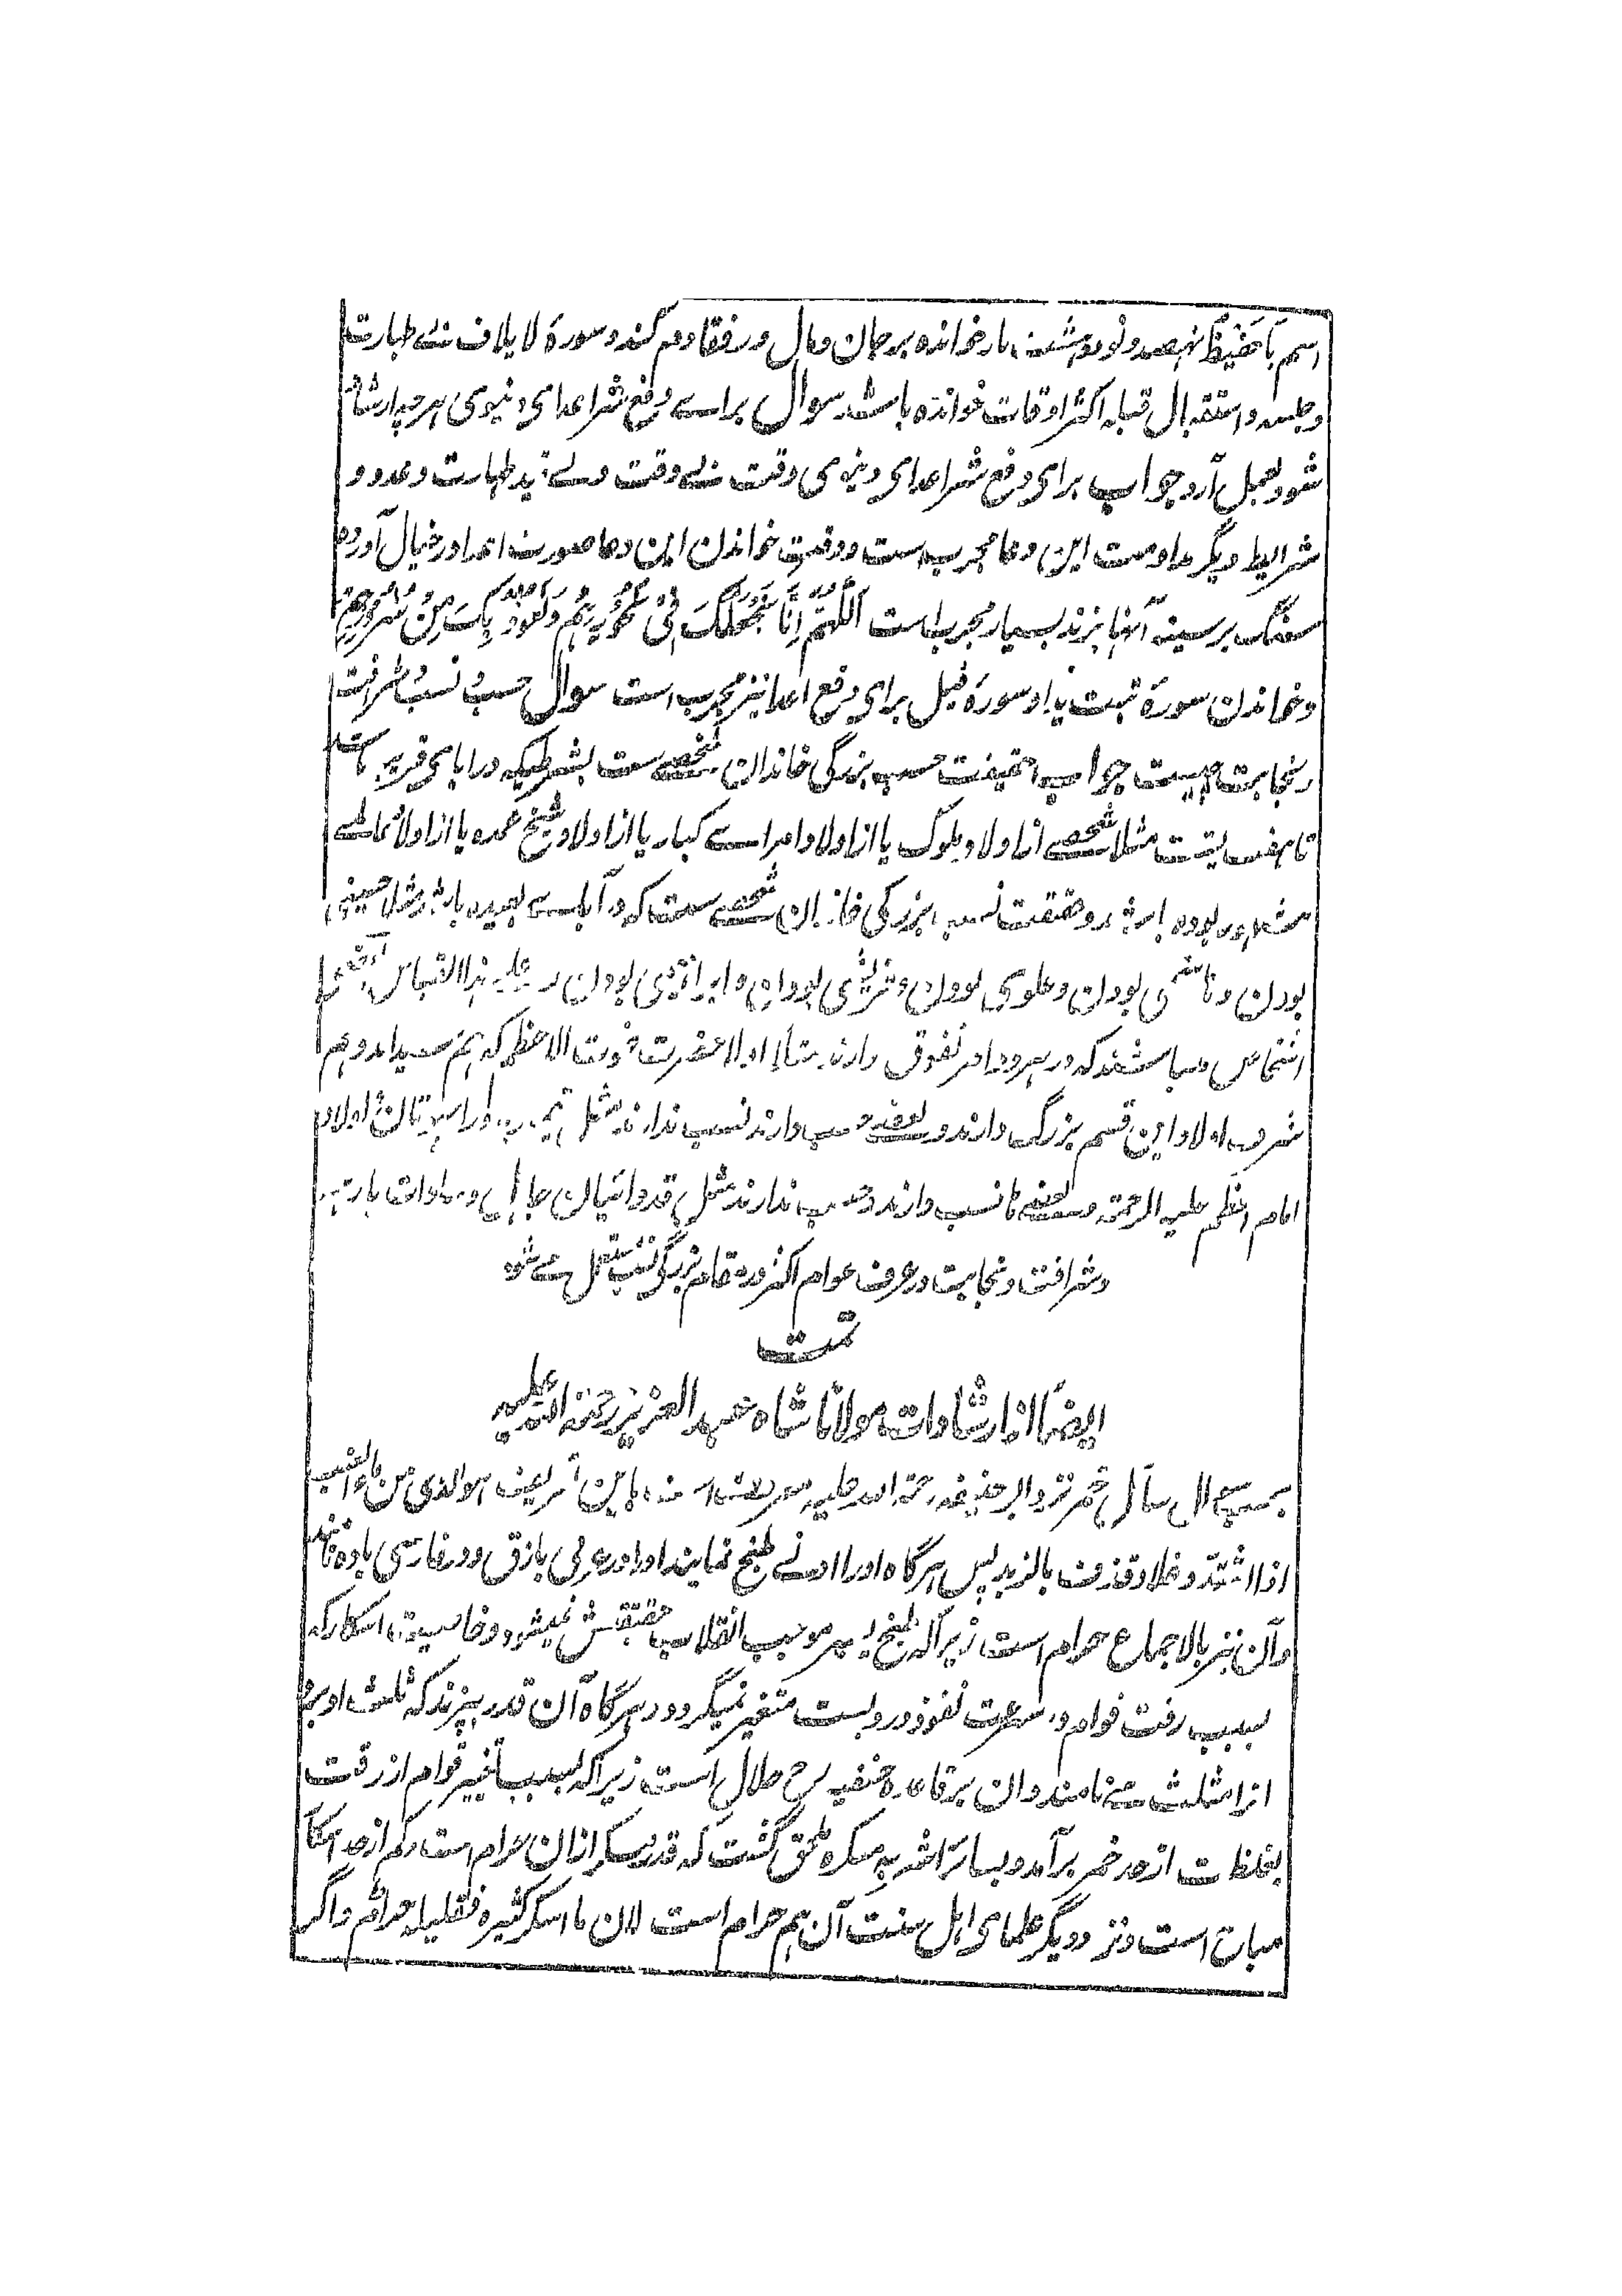 اسم یَا حَفِیظُ نہصد و نود و ہشت بار خواندہ بر جان و مال و رفقا دم کند و سورۂ لایلاف بے طہارت
و جلسہ و استقبال قبلہ اکثر اوقات خواندہ باشد سوال براے دفع شر اعدای دنیوی ہرچہ ارشاد
شود بعمل آرد جواب برای دفع شر اعدای دنیوی وقت بے وقت ولے قید طہارت و عدد و
شرایط دیگر مداومت این دعا مجرب ست و وقت خواندن این دعا صورت اعدا در خیال آوردہ
سنگ بر سینہ آنہا زند بسیار مجرب است اَللّٰهُمَّ اِنَّا نَجْعَلُكَ فِیْ نُحُوْرِهِمْ وَنَعُوْذُ بِكَ مِنْ شُرُوْرِهِمْ
و خواندن سورۂ تبت یدا و سورۂ فیل برای دفع اعدا نیز مجرب است سوال حسب و نسب و شرافت
و نجابت چیست جواب حقیقت حسب بزرگی خاندان شخصے ست بشرطیکہ در ابای قریبہ باشد
تا ہفت پشت مثلا شخصے از اولاد ملوک یا از اولاد امراے کبار یا از اولاد شیخ عمدہ یا از اولاد عالمے
مشہور بودہ باشد و حقیقت نسب بزرگی خاندان شخصے ست کہ در آباے بعیدہ باشد مثل حسینی
بودن و ہاشمی بودن و علوی بودن و قریشی بودن و ابراہیمی بودن و علی ہذا القیاس بعضے
اشخاص میباشند کہ در ہر دو امر تفوق دارند مثلا اولاد حضرت غوث الاعظم کہ ہم سید اند و ہم
شرف اولاد این قسم بزرگ دارند و بعضے حسب دارند نسب ندارند مثل اولاد
امام اعظم علیہ الرحمۃ و بعضے ہا نسب دارند و حسب ندارند مثل قدوائیان جاہل و سادات بارہہ
و شرافت و نجابت در عرف عوام اکثر در مقام بزرگی نسب مستعمل مے شود
تمت
ایضًا از ارشادات مولانا شاہ عبدالعزیز رحمۃ اللہ علیہ
سوال خمر نزد ابو حنیفہ رحمۃ اللہ علیہ باین تعریف ہو الذی من ماء العنب
اذا اشتدّ و غلا و قذف بالزبد پس ہرگاہ اورا ادنے طبخ نمایند اورا در عربی باذق و در فارسی بادہ نامند
و آن نیز بالاجماع حرام است زیراکہ طبخ یسیر موجب انقلاب حقیقتش نمیشود و خاصیت اسکار کہ
بسبب رقت قوام و سرعت نفوذ در وست متغیر نمیگردد و ہرگاہ آن قدر بپزند کہ ثلث او برود
انرا مثلث مے نامند و ان بر قاعدہ حنفیہ رح حلال است زیراکہ بسبب تغییر قوام از رقت
بغلظت از حد خمر برآمد و بسائر اشربہ مسکرہ ملحق گشت کہ قدر مسکر ازان حرام است و کم از حد اسکار
مباح است و نزد دیگر علمای اہل سنت آن ہم حرام است لان ما اسکر کثیرہ فقلیلہ حرام و اگر